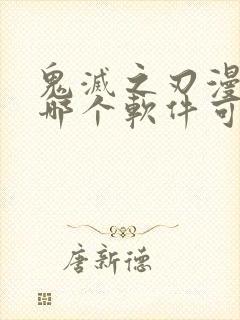 鬼滅之刃漫
哪个軟件可
唐新德